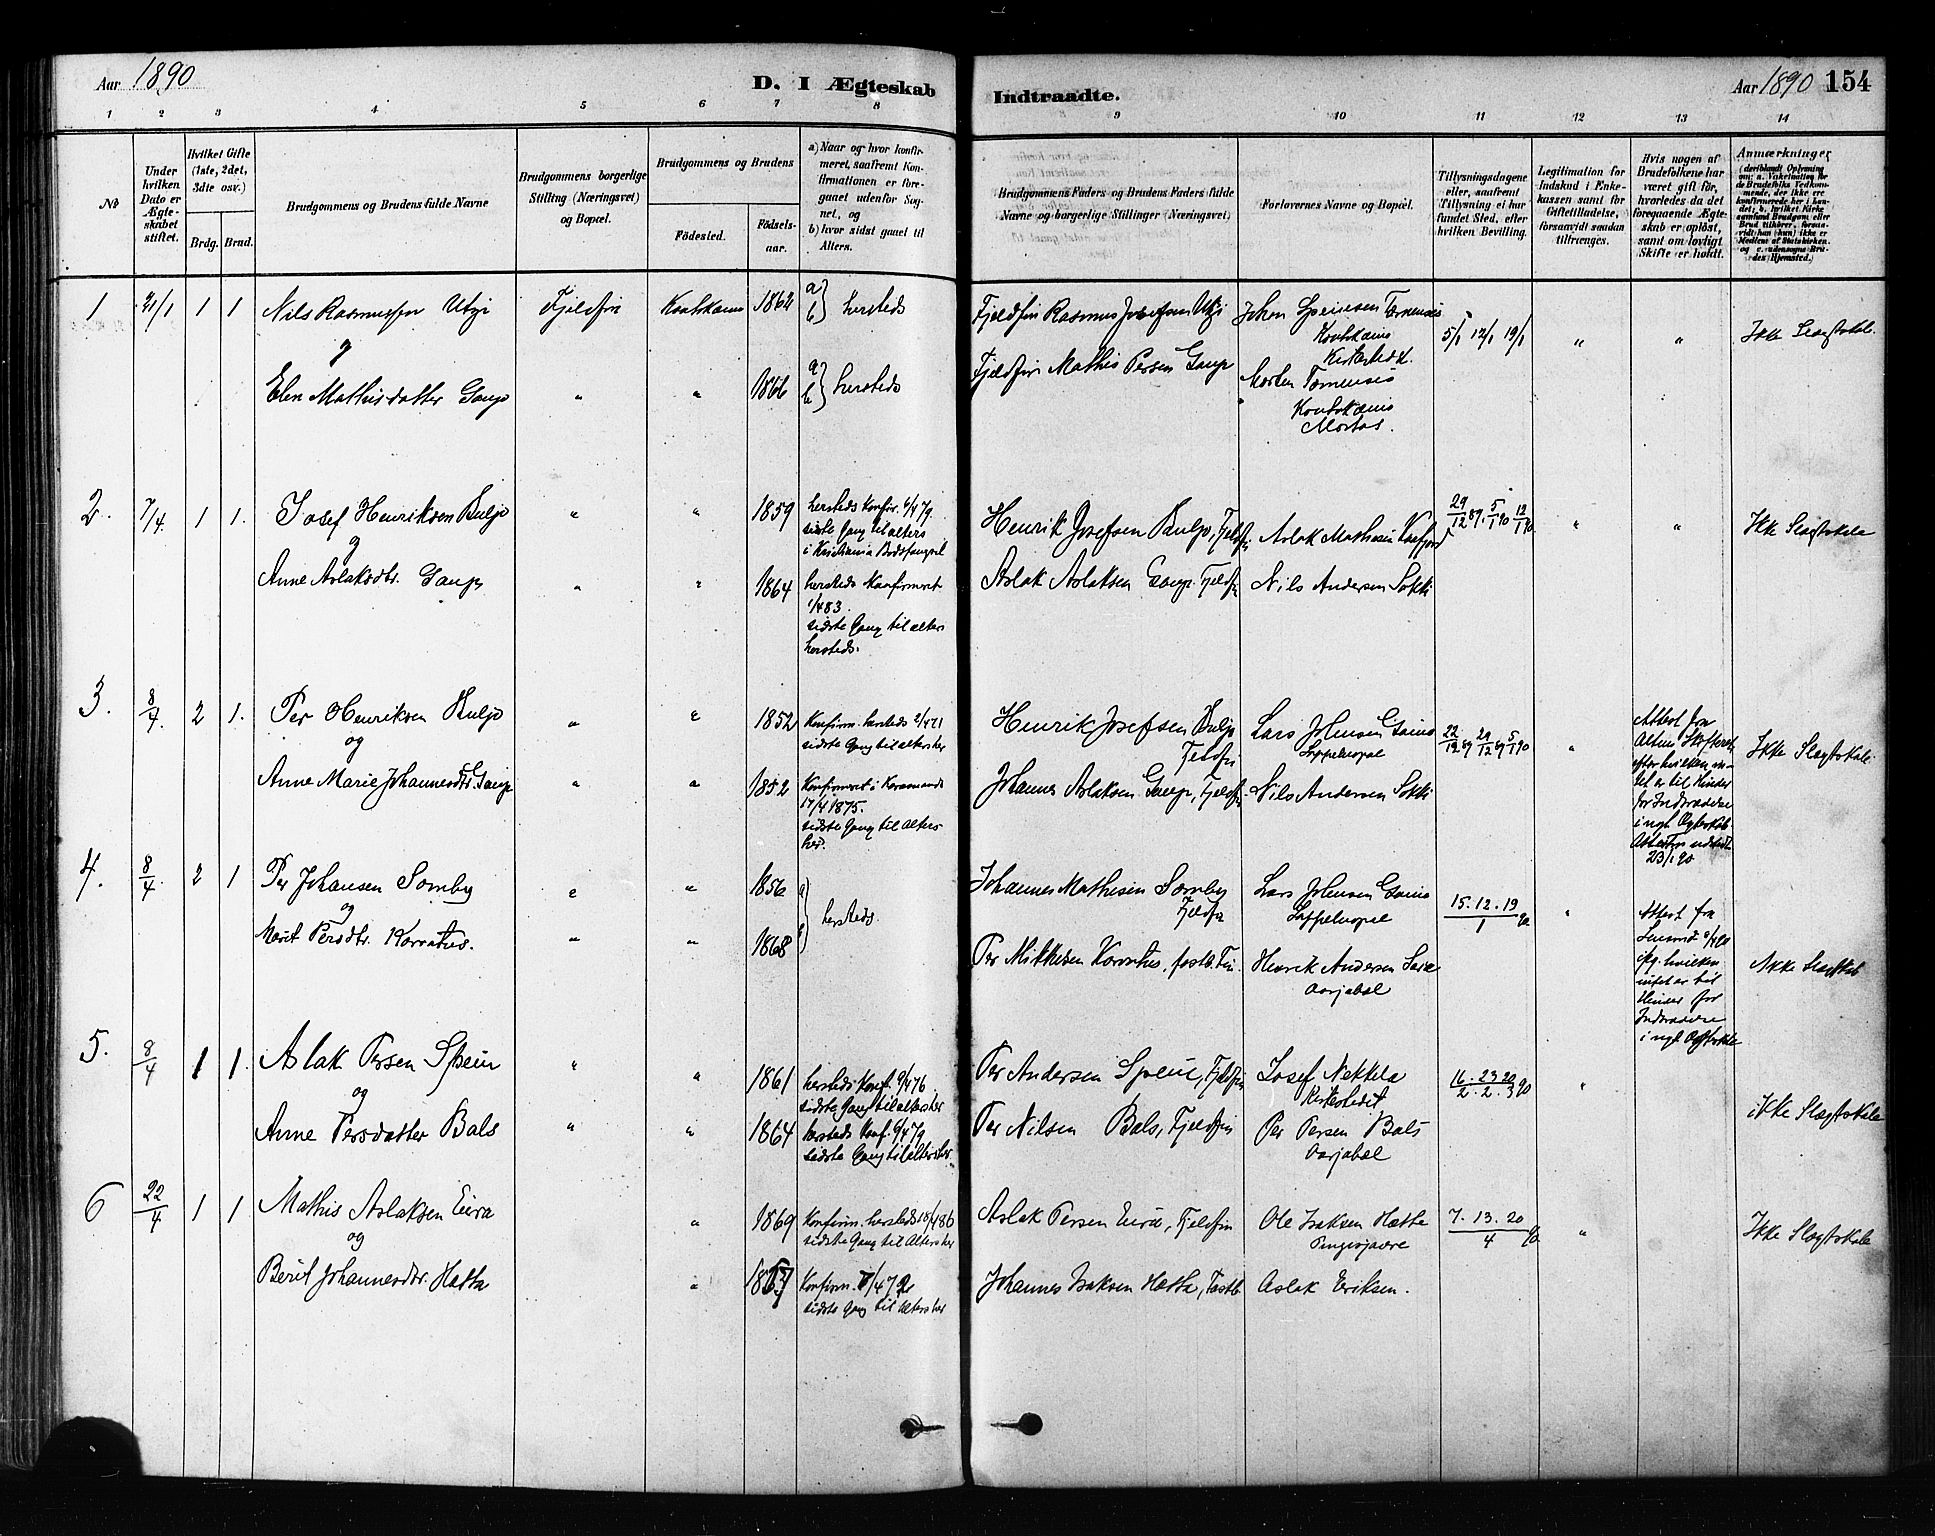 Aar 1890
D. I Ægteskab
Indtraadte.
Aar 1890 154
1 2 3 4 5 6 7 8 9 10 11 12 13 14
No
Under hvilken Dato er Ægteskabet stiftet.
Hvilket Gifte (1ste, 2det, 3die osv.)
Brdg. Brud.
Brudgommens og Brudens fulde Navne
Brudgommens borgerlige Stilling (Næringsvei) og Bopæl.
Brudgommens og Brudens
Fødested.
Fødselsaar.
a) Naar og hvor konfirmeret, saafremt Konfirmationen er foregaaet udenfor Sognet, og
b) hvor sidst gaaet til Alters.
Brudgommens Faders og Brudens Faders fulde Navne og borgerlige Stillinger (Næringsvei)
Forlovernes Navne og Bopæl.
Tillysningsdagene eller, saafremt Tillysning ei har fundet Sted, efter hvilken Bevilling.
Legitimation for Indskud i Enkekassen samt for Giftetilladelse, forsaavidt saadan tiltrænges.
Hvis nogen af Brudefolkene har været gift før, hvorledes da det foregaaende Ægteskab er opløst, samt om lovligt Skifte er holdt.
Anmærkninger
1 21/1 1 1 Nils Rasmussen Utsi Fjeldfin Koutokæino 1862 a b} hersteds
Fjeldfin Rasmus Josefsen Utsi
Johan
Koutokæino
Kirkested
5/1 12/1 19/1 " " Ikke Slægtskab.
og
Elen Mathisdatter Gaup " " 1866 a b} hersteds
Fjeldfin Mathis Persen Gaup
Morten Tornensis
Koutokæino
2. 7/4. 1 1. Josef Henriksen Buljo " " 1859 hersteds Konfir. 6/4 79
sidste Gang til alters
i Kristiania Bodsfængsel
Henrik Josefsen Buljo, Fjeldfin Aslak Mathesen
29/12 89. 5/1 90 12/1 90 " " Ikke Slægtskab
og
Anne Aslaksdtr. Gaup " " 1864 hersteds Konfirmeret
1/4 83.
sidste Gang til alters
hersteds.
Aslak Aslaksen Gaup. Fjeldfin Nils Andersen Sokki
3. 8/4. 2 1. Per Henriksen Buljo " " 1852 Konfirm. hersteds 2/4 71
sidste Gang til alters her
Henrik Josefsen Buljo
Fjeldfin
Lars Johnsen Gaino
Lappeluopal
22/12 89 29/12 89 5/1 90 "
Attest fra
Altens Skifteret
efter hvilken intet er til Hinder
for Indtrædelse
i nyt Ægteskab
Attesten udstedt
23/1 90
Ikke Slægtskab
og
Anne Marie Johannesdtr. Gaup " " 1852 Konfirmeret i
17/4 1875.
sidste Gang til Alters
her.
Johannes Aslaksen Gaup, Fjeldfin Nils Andersen Sokki
4. 8/4. 2 1 Per Johansen Somby " " 1856 a b} hersteds
Johannes Mathisen Somby
Fjeldfin
Lars Johnsen Gaino
Lappeluopal
15. 12. 19/1 90 "
Attest fra
Lensmd
ifg. hvilken
intet er til
Hinder for
Indtrædelse
i nyt Ægteskab
Ikke Slægtskab
og
Marit Persdtr. Korratus. " " 1868
Per Mikkelsen Korratus, fastb. Fin. Henrik Andersen Sara
Aarjabal
5. 8/4 1 1. Aslak Persen Spein " " 1861 hersteds Konf. 9/4 76
sidste Gang til alters her
Per Andersen Spein, Fjeldfin Josef Nekkela
Kirkestedet
16. 23 20/2. 2. 3 90 " ikke Slægtskab
og
Anne Persdatter Bals " " 1864 hersteds Konf. 6/4 79
sidste Gang til alters her.
Per Nilsen Bals, Fjeldfin Per Persen Bals
Aarjabal
6 22/4 1 1 Mathis Aslaksen Eira " 1869 Konfirm. hersteds 18/4 86
sidste Gang til Alters her
Aslak Persen Eira, Fjeldfin Ole Isaksen Hætta
7. 13. 20/4 90 " Ikke Slægtskab
og
Berit Johannesdtr. Hætta " Konfirm.
sidste Gang til Alters her
Johannes Isaksen Hætta, Fastb. Aslak Eriksen.